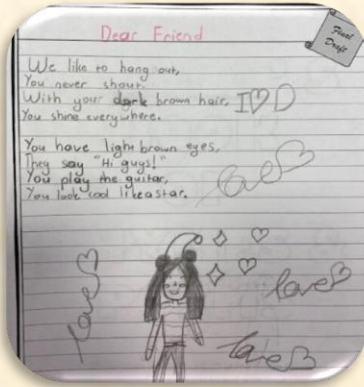 Dear Friend
Final
Draft
We like to hang out,
You never shout.
With your dark brown hair, I♡D
You shine everywhere.
You have light brown eyes,
They say "Hi guys!"
You play the guitar,
You look cool like a star.
love
love
love
love